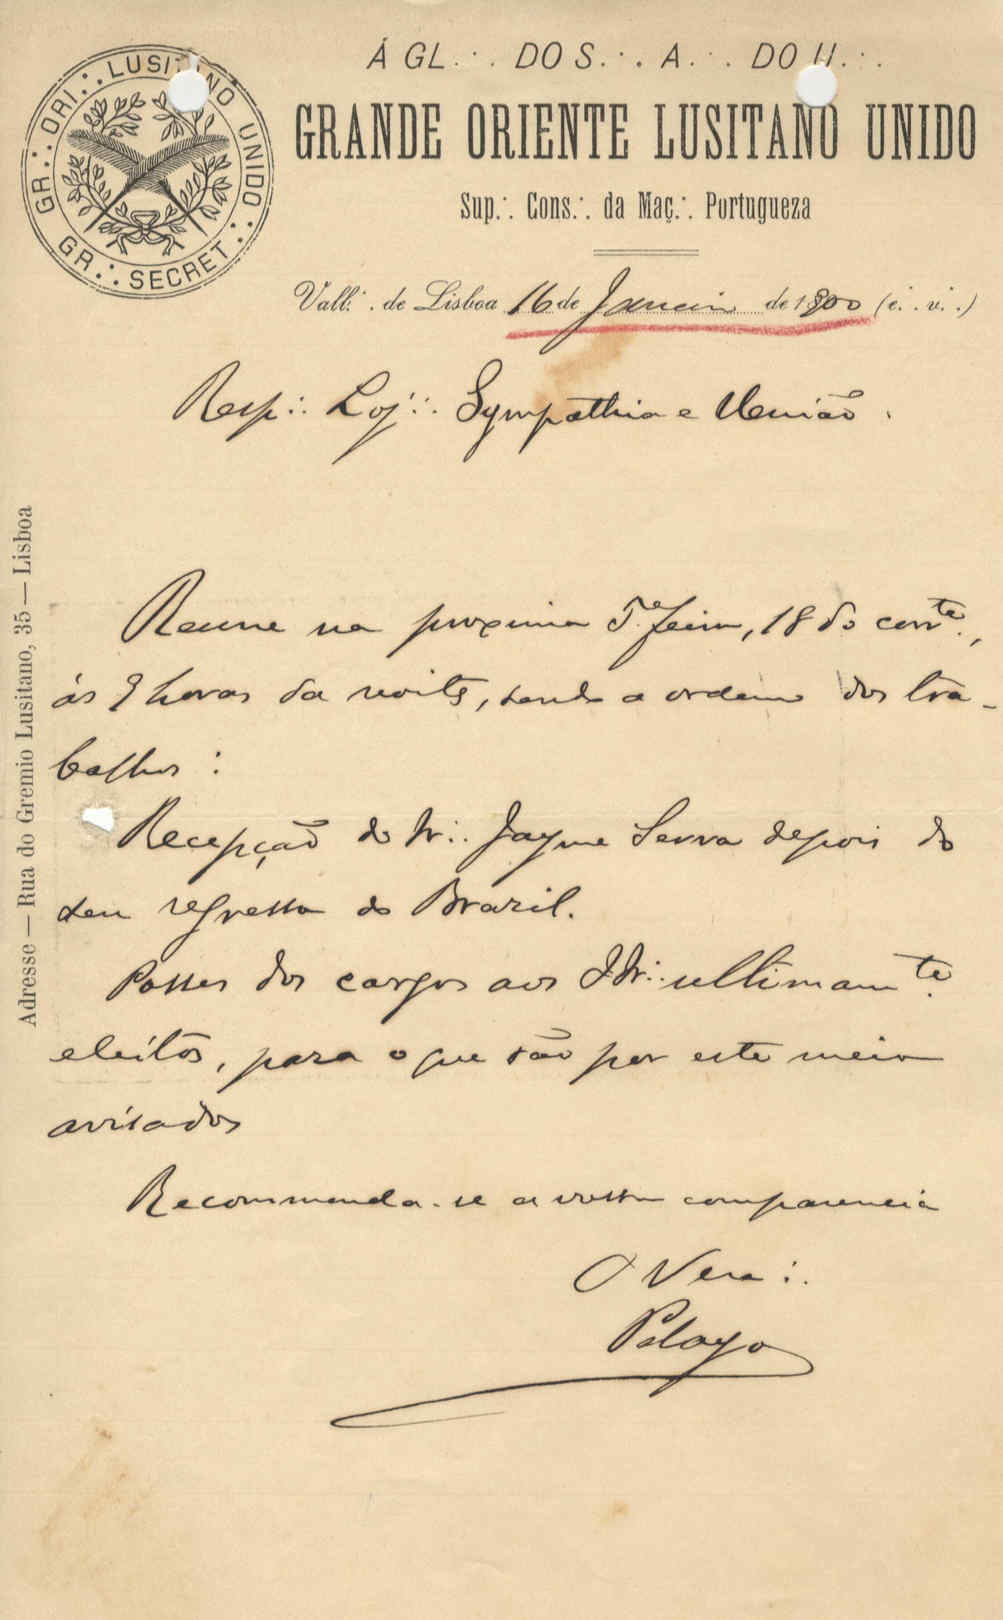 Á GL.·. DO S.·. A.·. DO U.·.
GR.·. ORI.·. LUSITANO UNIDO
GR.·. SECRET.·.
GRANDE ORIENTE LUSITANO UNIDO
Sup.·. Cons.·. da Maç.·. Portugueza
Vall.·. de Lisboa 16 de Janeiro de 1900 (e.·. v.·.)
Resp.·. Loj.·. Sympathia e União.
Adresse — Rua do Gremio Lusitano, 35 — Lisboa
Reune na proxima 5.ª feira, 18 do corr.te,
ás 9 horas da noite, sendo a ordem dos tra-
balhos :
Recepção do Ir.·. Jayme Serra depois do
seu regresso do Brazil.
Posses dos cargos aos IIr.·. ultimam.te
eleitos, para o que são por este meio
avisados
Recommenda-se a vossa comparencia
O Ven.·.
Pelayo